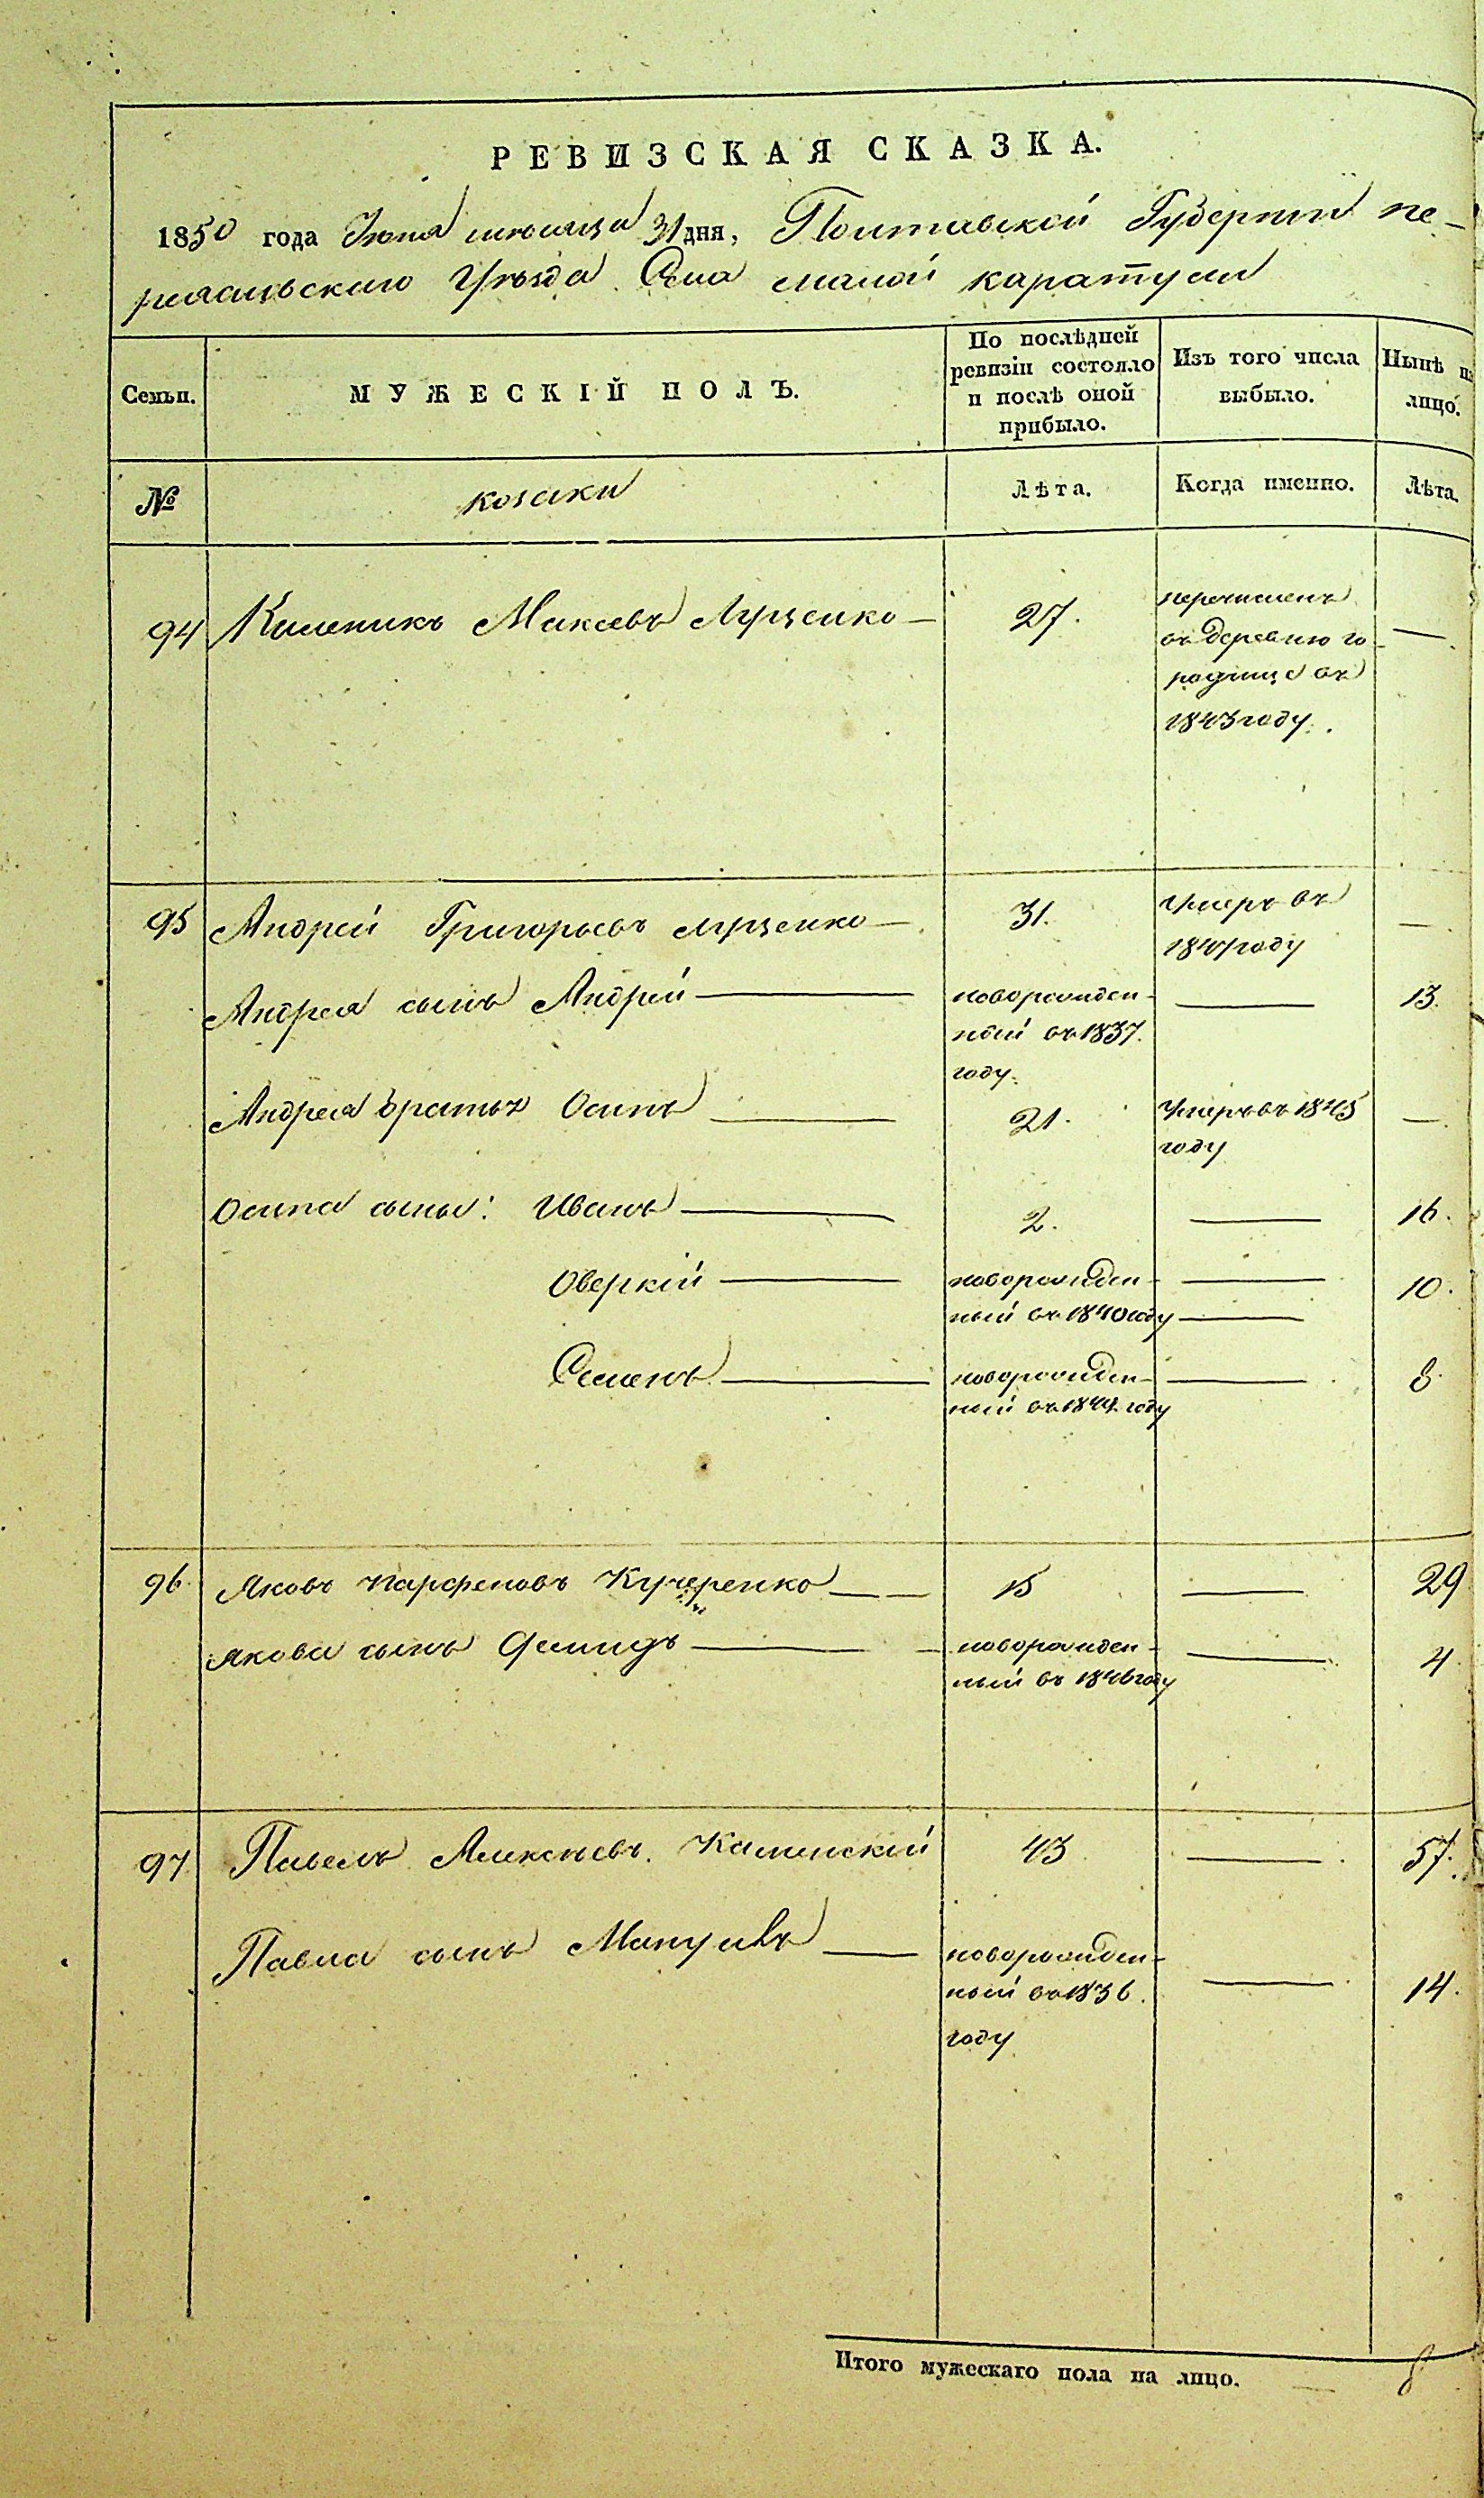 РЕВИЗСКАЯ СКАЗКА.
1850 года Июня месяца 31 дня, Полтавской Губернии Пе-
реяславского Уезда Села малой каратули
Семьи.
МУЖЕСКІЙ ПОЛЪ.
По послѣдней
ревизіи состояло
и послѣ оной
прибыло.
Изъ того числа
выбыло.
Нынѣ на
лицо.
№
козаки
Лѣта.
Когда именно.
Лѣта.
94 Каленикъ Луценко — 27. перечисленъ —
въ деревню го-
въ
1843 году.
95 Андрей Григорьевъ Луценко — 31. умеръ въ —
году
Андрея сынъ Андрей — новорожден- — 13.
ный въ 1837.
году.
Андрея братъ Осипъ — 21. умеръ въ 1845 —
году
Осипа сыны: Иванъ — 2. — 16.
Оверкій — новорожден- — 10.
ный въ 1840 году —
Семенъ — новорожден- — 8.
ный въ году
96. Яковъ Парфеновъ Кучеренко — 15 — 29
Якова сынъ — новорожден- — 4.
ный въ 1846 году
97 Павелъ Алексѣевъ Каминскій 43. — 57.
Павла сынъ — новорожден- — 14.
ный въ 1836.
году
Итого мужескаго пола на лицо. — 8